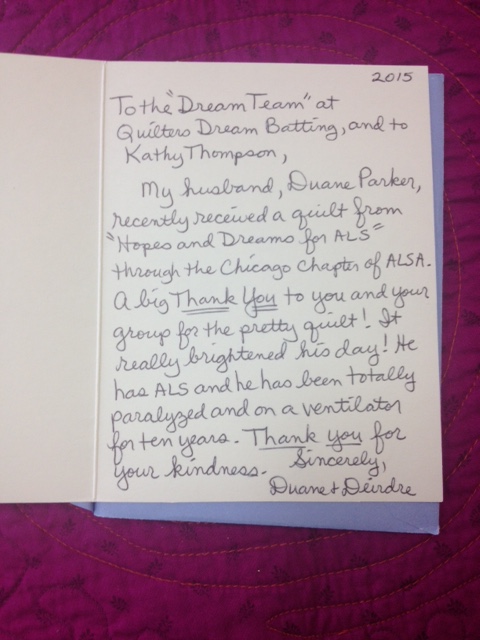 2015
To the "Dream Team" at
Quilters Dream Batting, and to
Kathy Thompson,
My husband, Duane Parker,
recently received a quilt from
"Hopes and Dreams for ALS"
through the Chicago Chapter of ALSA.
A big Thank You to you and your
group for the pretty quilt! It
really brightened his day! He
has ALS and he has been totally
paralyzed and on a ventilator
for ten years. Thank you for
your kindness. Sincerely,
Duane & Deirdre